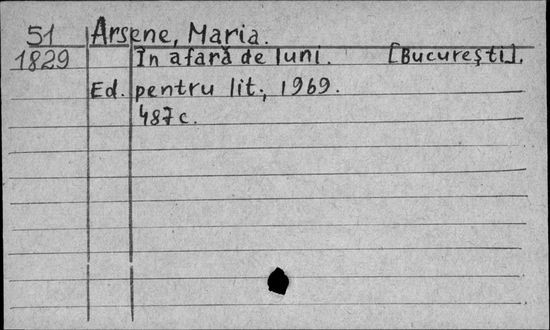 51 Arsene, Maria.
1829 În afară de luni. [Bucureşti],
Ed. pentru lit., 1969.
487 c.